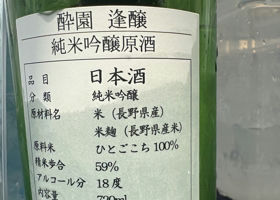 酔園 逢醸
純米吟醸原酒
品目 日本酒
分類 純米吟醸
原材料名 米（長野県産）
米麹（長野県産米）
原料米 ひとごこち100%
精米歩合 59%
アルコール分 18度
内容量 720ml